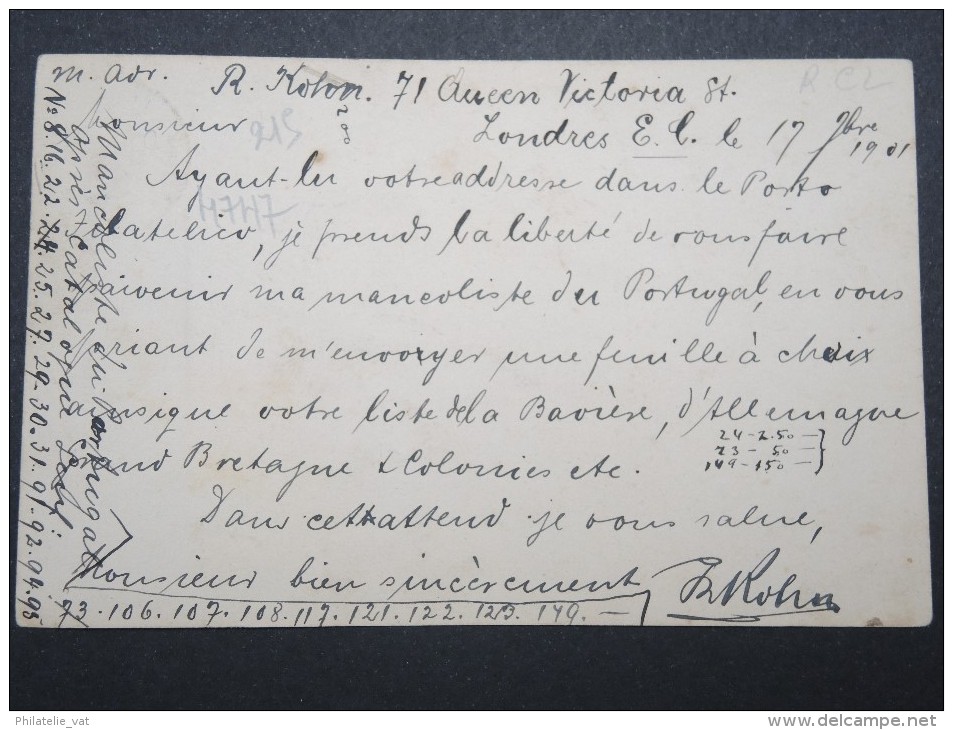 m. adr. R. Kohn. 71 Queen Victoria St.
Londres E. C. le 17 9bre 1901
Monsieur
Ayant-lu votre addresse dans le Porto
latelico, je prends la liberté de vous faire
ma mancoliste du Portugal, en vous
priant de m'envoyer une feuille à choix
ainsique votre liste de la Bavière, d'Allemagne
Grand Bretagne & Colonies etc.
24-2.50 —
23 - 50 —
149-150 —
Dans cett attend je vous salue,
Monsieur bien sincèrement
R Kohn
Mancoliste du Portugal
après Catalogue
No 8. 16. 21. 22. 24. 25. 27. 29. 30. 31. 91. 92. 94. 95
93. 106. 107. 108. 117. 121. 122. 123. 149. —
200
R CL
Philatelie_vat
www.delcampe.net